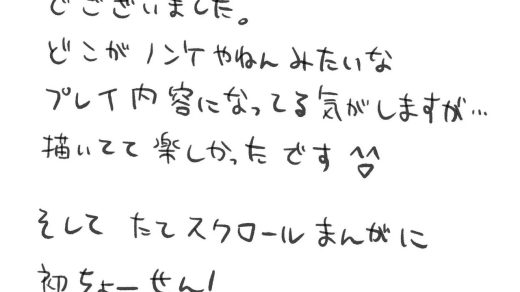 でございました。
どこがノンケやねんみたいな
プレイ内容になってる気がしますが…
描いてて楽しかったです^▽^
そして たてスクロールまんがに
初ちょーせん!